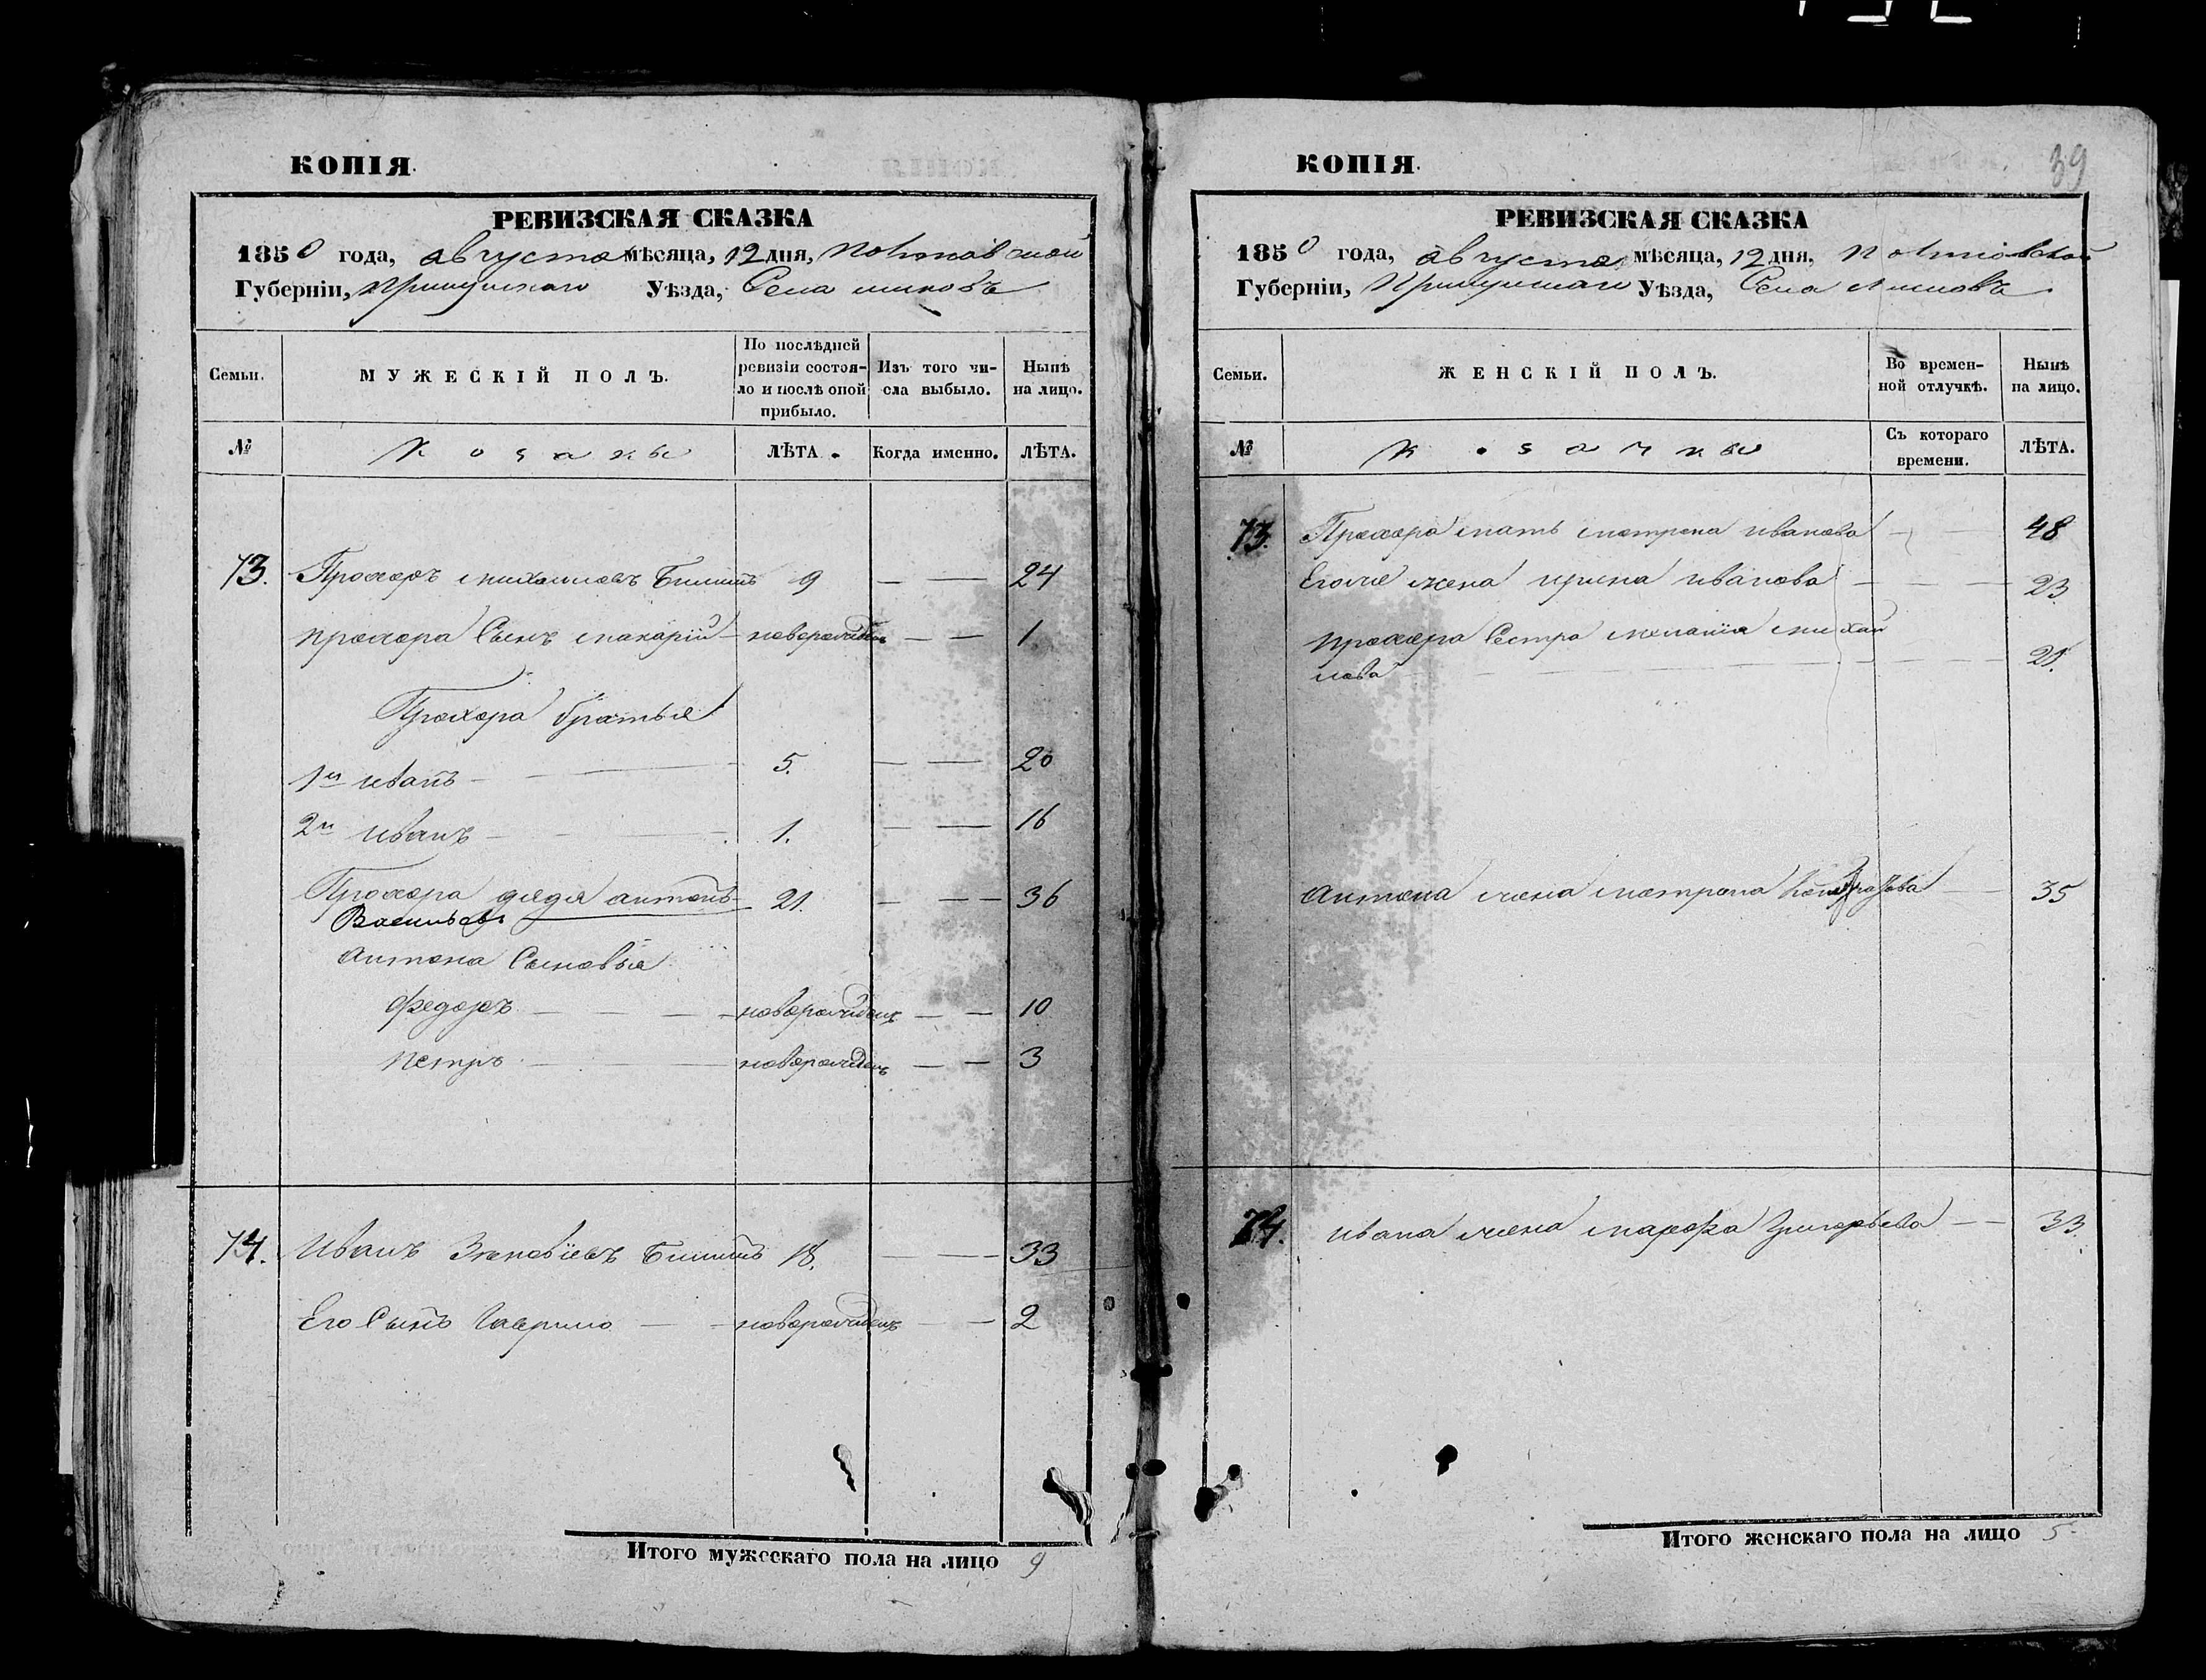 КОПІЯ.
РЕВИЗСКАЯ СКАЗКА
1850 года, августа мѣсяца, 12 дня, Полтавской
Губерніи, Прилуцкаго Уѣзда, Села
Семьи.
МУЖЕСКІЙ ПОЛЪ.
По послѣдней ревизіи состояло и послѣ оной прибыло.
Изъ того числа выбыло.
Нынѣ на лицо.
№
Козаки
ЛѢТА.
Когда именно.
ЛѢТА.
73. Прохоръ Михайловъ 9 — — 24
Прохора Сынъ Макарій — новорожденъ — — 1
Прохора братья
1й Иванъ — — — 5. — — 20
2й Иванъ — — — 1. — — 16
Прохора дядя Антонъ 21. — — 36
Васильевъ
Антона Сыновья
Федоръ — — — новорожденъ — — 10
Петръ — — новорожденъ — — 3
74. Иванъ Зеновіевъ 18. — — 33
Его Сынъ Гаврило — — новорожденъ — — 2
Итого мужескаго пола на лицо 9
39
КОПІЯ.
РЕВИЗСКАЯ СКАЗКА
1850 года, августа мѣсяца, 12 дня, Полтавской
Губерніи, Прилуцкаго Уѣзда, Села
Семьи.
ЖЕНСКІЙ ПОЛЪ.
Во временной отлучкѣ.
Нынѣ на лицо.
№
Козачки
Съ котораго времени.
ЛѢТА.
73. Прохора мать Мотрона Иванова — — 48
Его же жена Ирина Иванова — — — 23
Прохора Сестра Меланія Михай
лова — — — 21.
Антона жена Мотрона — — 35
74. Ивана жена Марфа Григорьева — — 33.
Итого женскаго пола на лицо 5